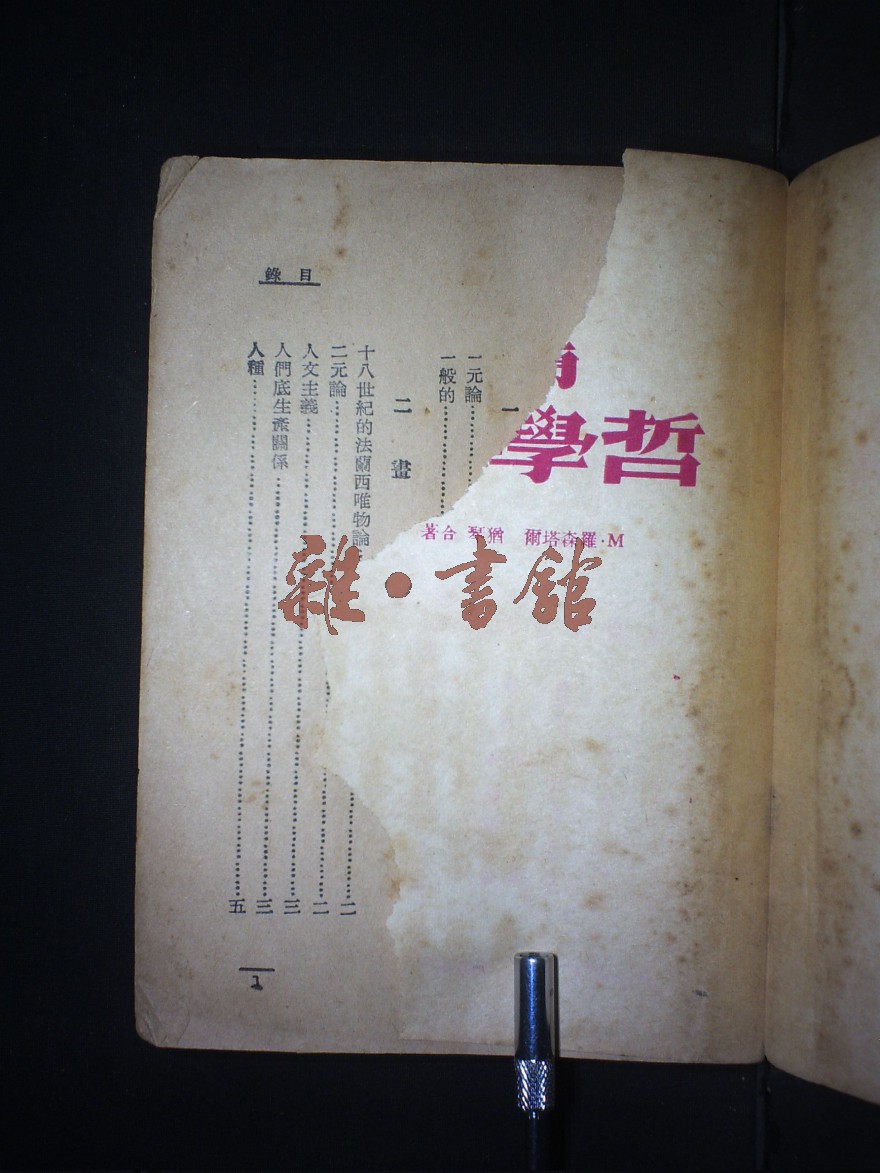 目錄
哲學
M·羅森塔爾 猶琴 合著
一
一元論
一般的
二畫
十八世紀的法蘭西唯物論
二元論
二
人文主義
二
人們底生產關係
三
人種
五
1
雜·書館